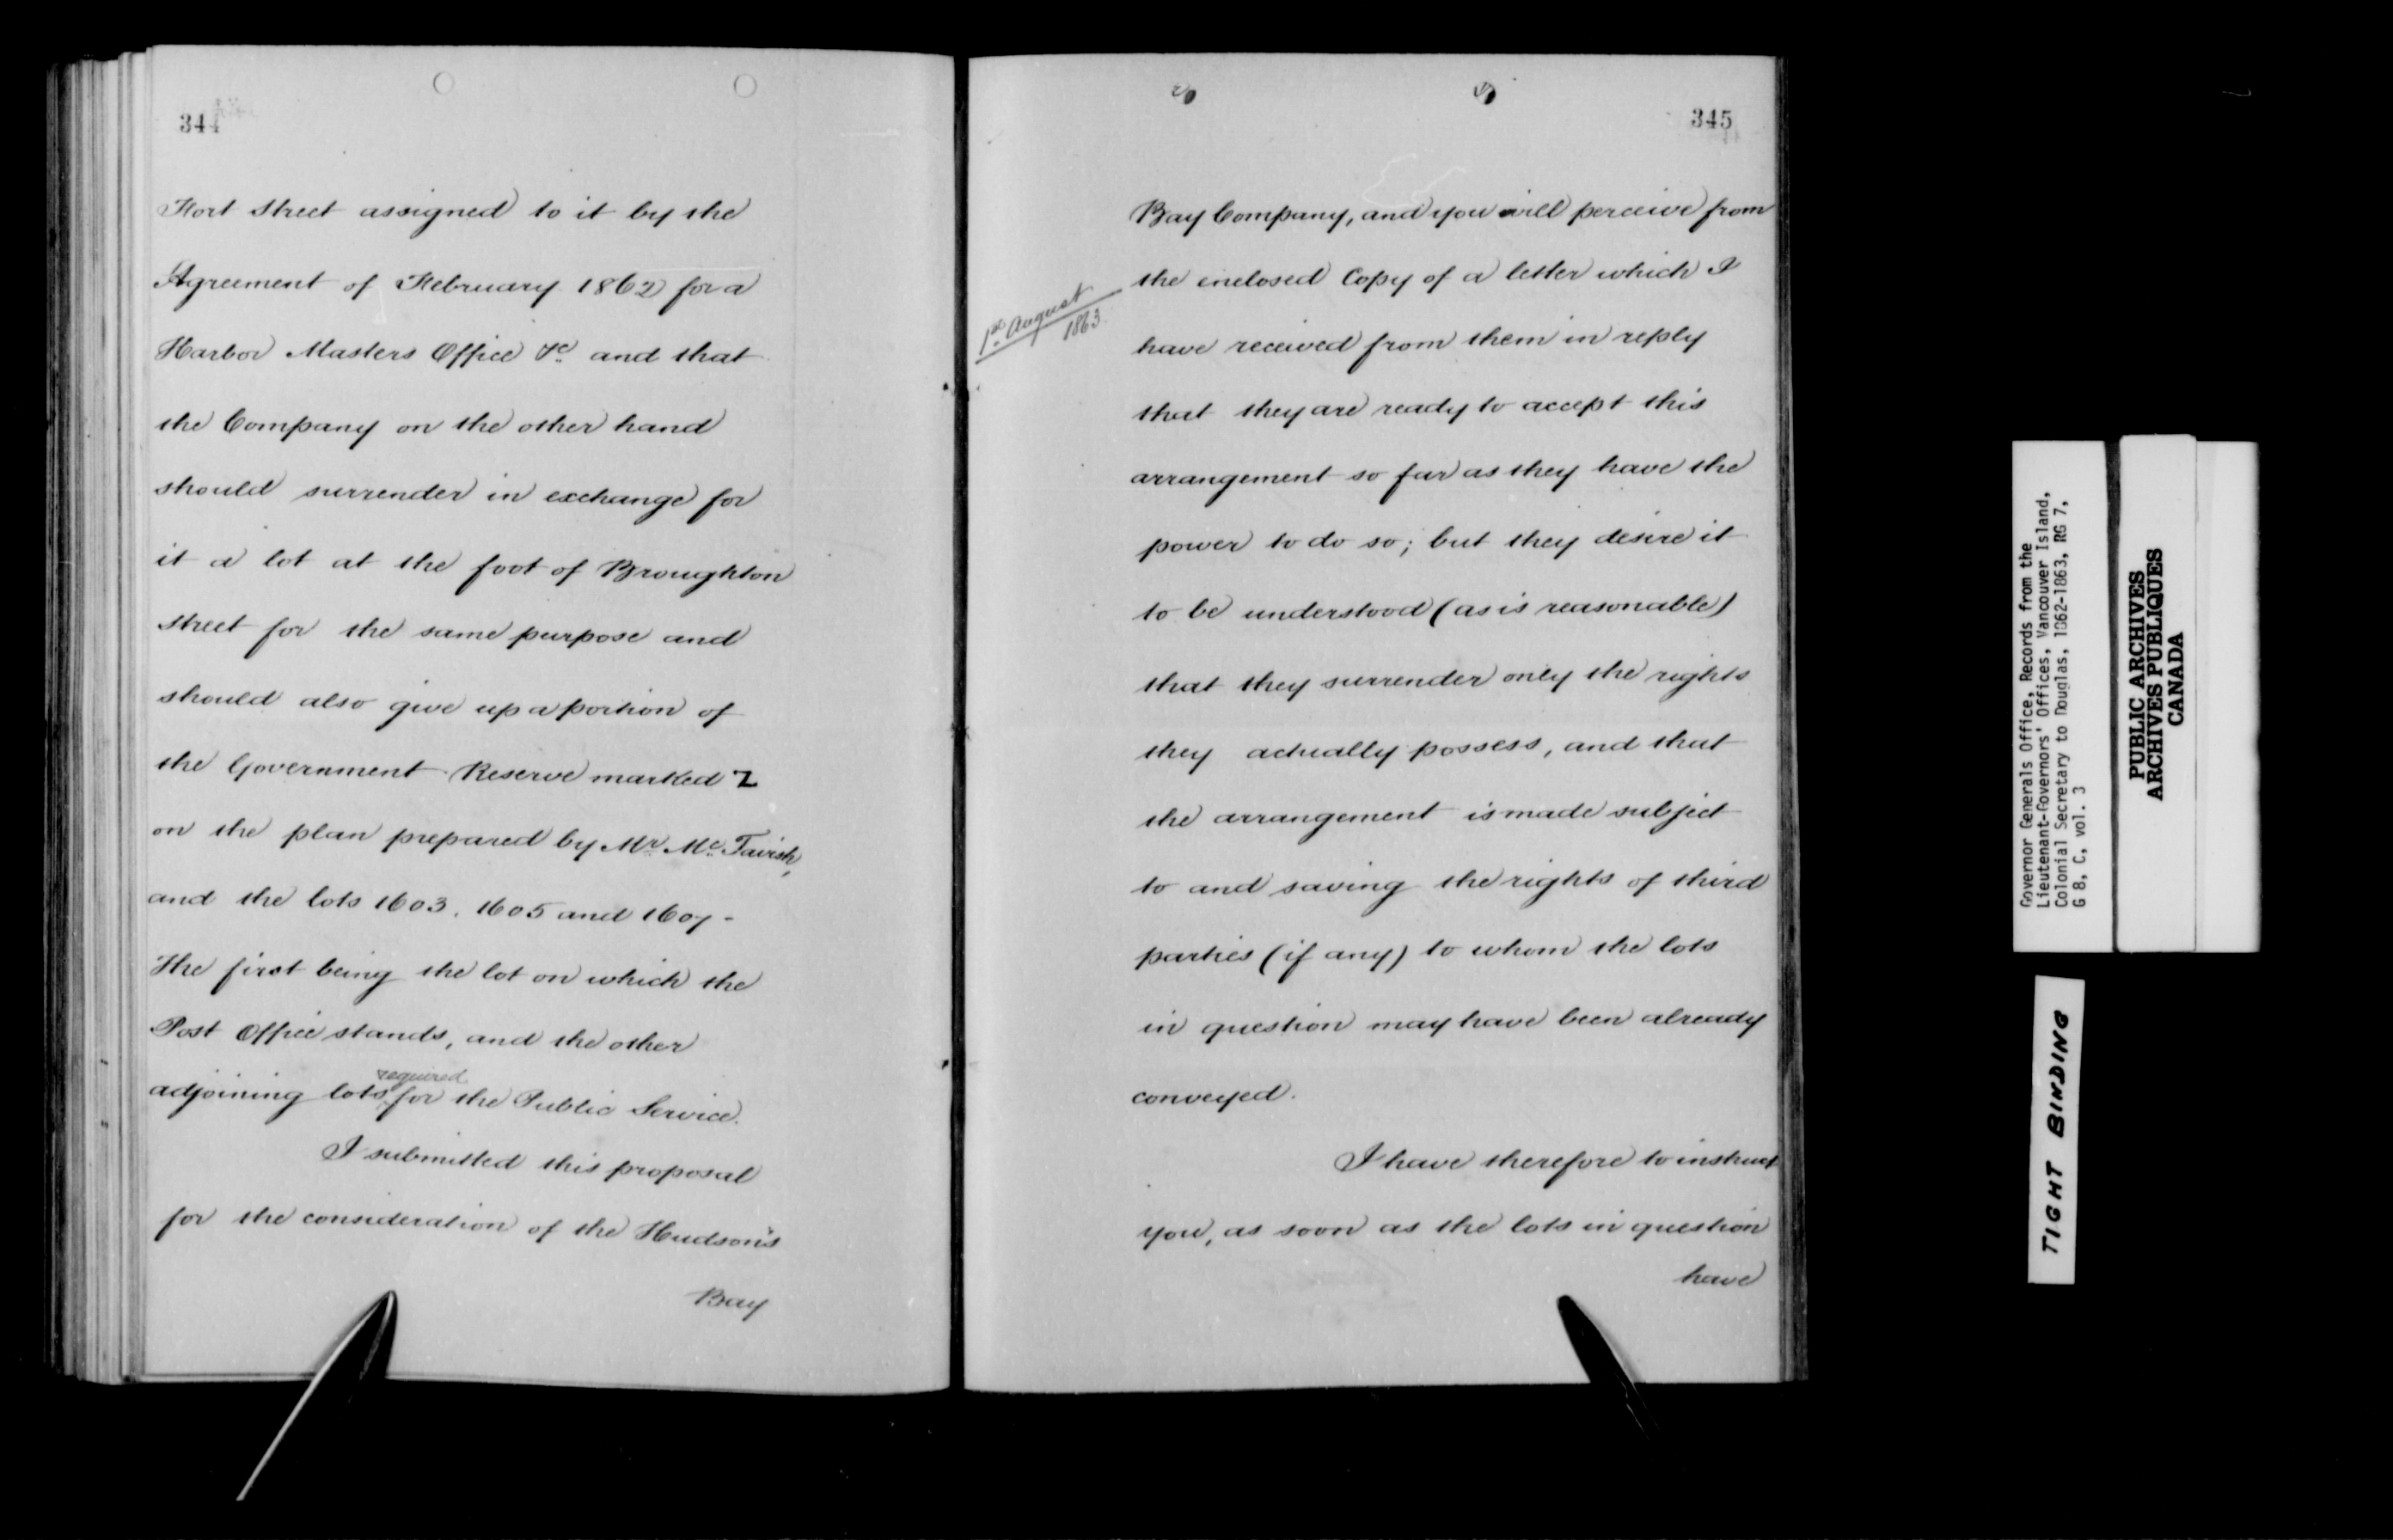 344
Fort Street assigned to it by the
Agreement of February 1862 for a
Harbor Masters Office &c and that
the Company on the other hand
should surrender in exchange for
it a lot at the foot of Broughton
street for the same purpose and
should also give up a portion of
the Government Reserve marked Z
on the plan prepared by Mr. Mc.Tavish,
and the lots 1603. 1605 and 1607 -
The first being the lot on which the
Post Office stands, and the other
required
adjoining lots for the Public Service.
I submitted this proposal
for the consideration of the Hudson's
Bay
345
Bay Company, and you will perceive from
the enclosed Copy of a letter which I
1st August
1863.
have received from them in reply
that they are ready to accept this
arrangement so far as they have the
power to do so; but they desire it
to be understood (as is reasonable)
that they surrender only the rights
they actually possess, and that
the arrangement is made subject
to and saving the rights of third
parties (if any) to whom the lots
in question may have been already
conveyed.
I have therefore to instruct
you, as soon as the lots in question
have
Governor Generals Office, Records from the
Lieutenant-Governors' Offices, Vancouver Island,
Colonial Secretary to Douglas, 1862-1863, RG 7,
G 8, C, vol. 3
PUBLIC ARCHIVES
ARCHIVES PUBLIQUES
CANADA
TIGHT BINDING